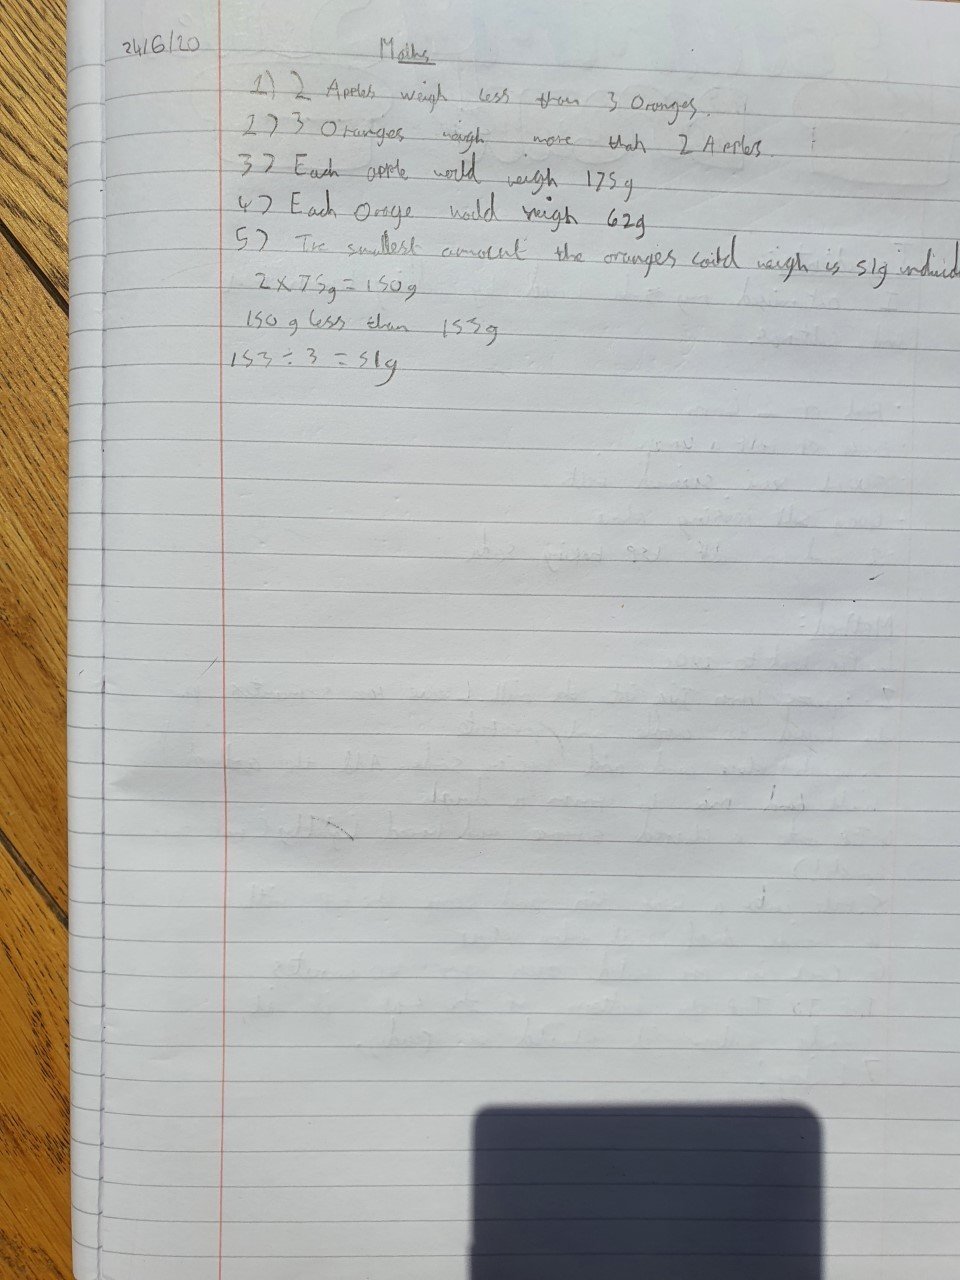 24/6/20
Maths
1) 2 Apples weigh less than 3 Oranges.
2) 3 Oranges weigh more than 2 Apples.
3) Each apple world weigh 175g
4) Each Orage would weigh 62g
5) The smallest amount the oranges could weigh is 51g
2 x 75g = 150g
150g less than 153g
153 ÷ 3 = 51g